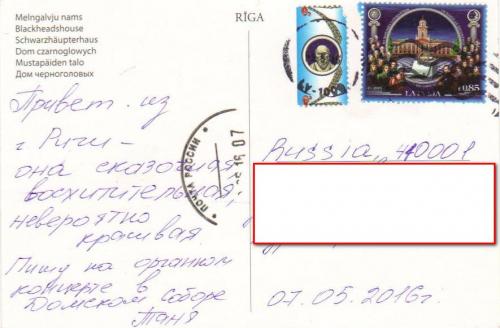 Melngalvju nams
Blackheadshouse
Schwarzhäupterhaus
Dom czarnoglowych
Mustapäiden talo
Дом черноголовых
RĪGA
LATVIJA
€0.85
ПОЧТА РОССИИ
Привет из
г Риги -
она сказочная,
восхитительная,
невероятно
красивая.
Пишу на органном
концерте в
Домском соборе
Таня
Russia, 410001
07.05.2016г